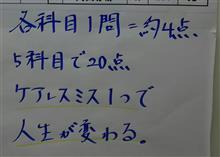 各科目1問=約4点
5科目で20点
ケアレスミス1つで
人生が変わる。